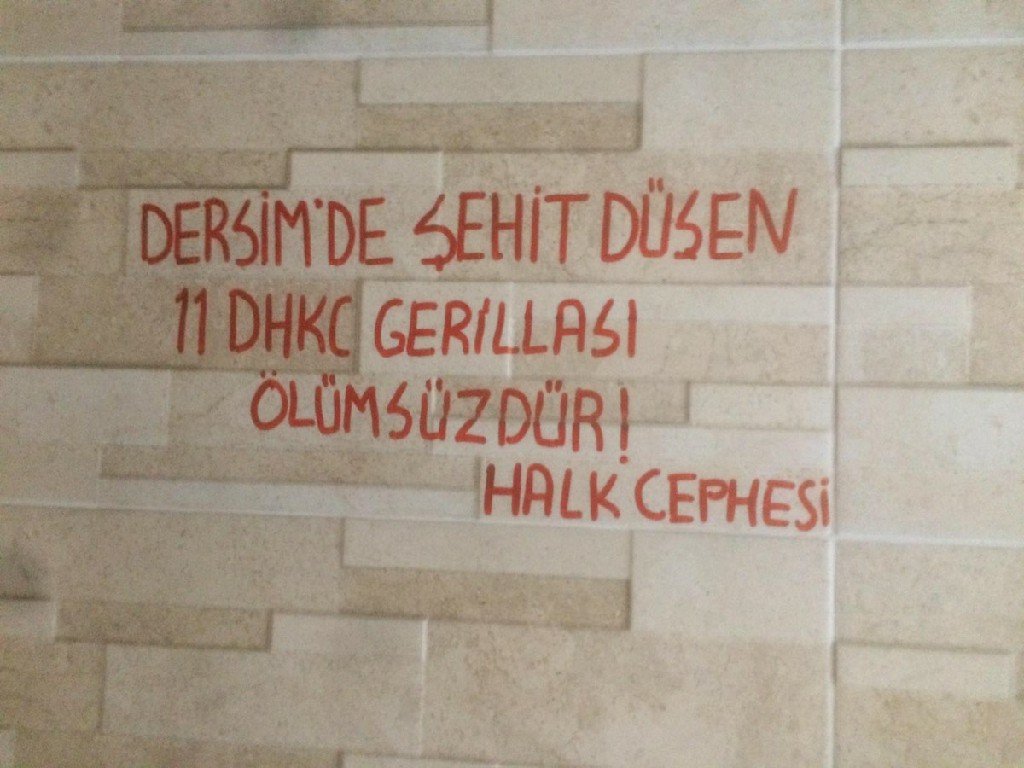 DERSİM'DE ŞEHİT DÜŞEN
11 DHKC GERİLLASI
ÖLÜMSÜZDÜR!
HALK CEPHESİ